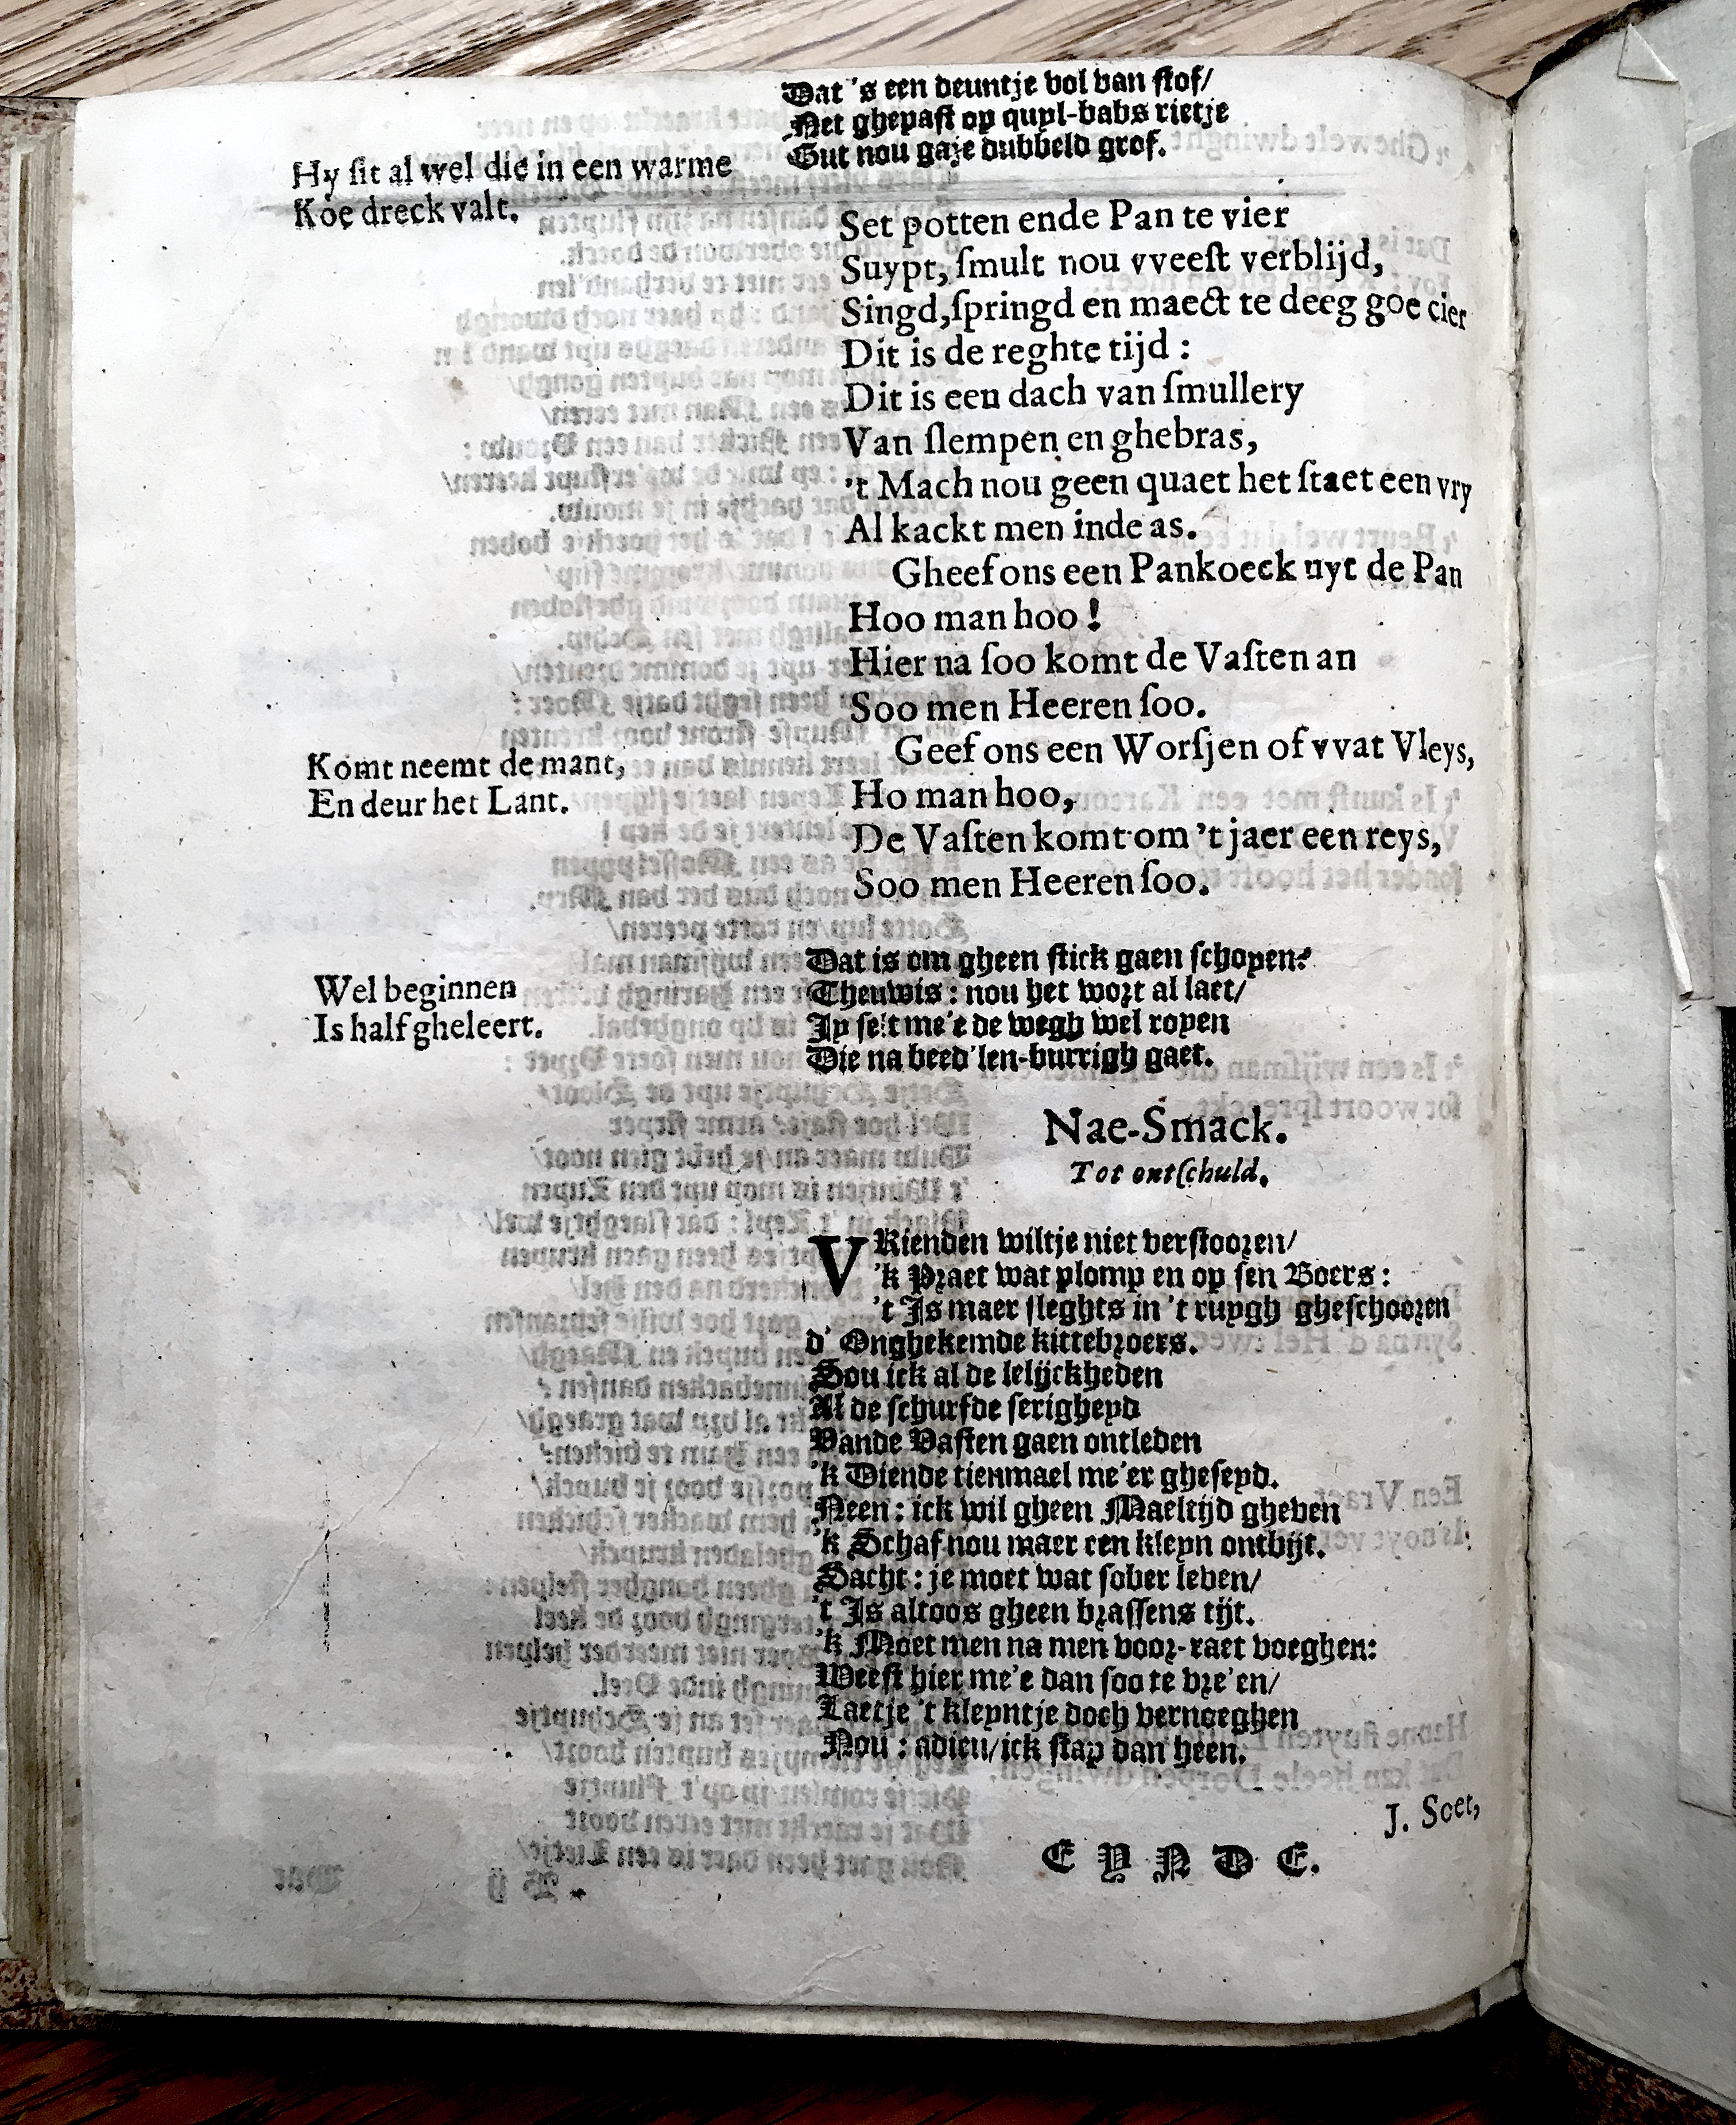 Dat 's een deuntje vol van stof/
Net ghepast op quyl-babs rietje
Gut nou gaje dubbeld grof.
Hy ſit al wel die in een warme
Koe dreck valt.
Set potten ende Pan te vier
Suypt, ſmult nou vveeſt verblijd,
Singd, ſpringd en maect te deeg goe cier
Dit is de reghte tijd :
Dit is een dach van ſmullery
Van ſlempen en ghebras,
't Mach nou geen quaet het ſtaet een vry
Al kackt men inde as.
Gheef ons een Pankoeck uyt de Pan
Hoo man hoo !
Hier na ſoo komt de Vaſten an
Soo men Heeren ſoo.
Geef ons een Worſjen of vvat Vleys,
Ho man hoo,
De Vaſten komt om 't jaer een reys,
Soo men Heeren ſoo.
Komt neemt de mant,
En deur het Lant.
Dat is om gheen ſtick gaen ſchoyen?
Theuwis : nou het wort al laet/
Jy ſelt me'e de wegh wel royen
Die na beed'len-burrigh gaet.
Wel beginnen
Is half gheleert.
Nae-Smack.
Tot ontſchuld.
VRienden wiltje niet verſtooren/
'k Praet wat plomp en op ſen Boers :
't Is maer ſleghts in 't ruygh gheſchooren
d' Onghekemde kittebroers.
Sou ick al de lelijckheden
Al de ſchurfde ſerigheyd
Vande Vaſten gaen ontleden
'k Diende tienmael me'er gheſeyd.
Neen : ick wil gheen Maeltijd gheven
'k Schaf nou maer een kleyn ontbijt.
Sacht : je moet wat ſober leven/
't Is altoos gheen braſſens tijt.
'k Moet men na men voor-raet voeghen:
Weeſt hier me'e dan ſoo te vre'en/
Laetje 't kleyntje doch vernoeghen
Nou : adieu/ ick ſtap dan heen.
J. Soet,
E Y N D E.